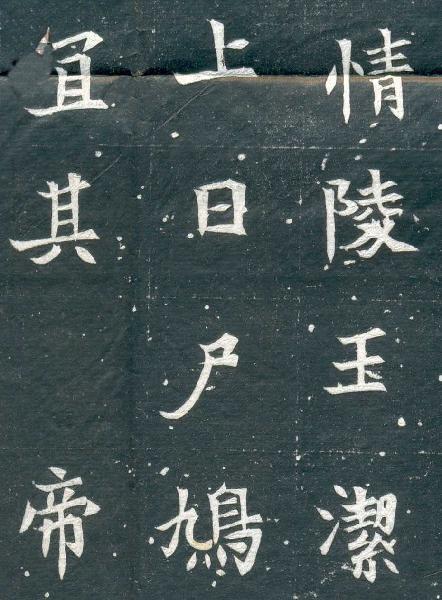 情陵玉潔
上日尸鳩
宜其　帝